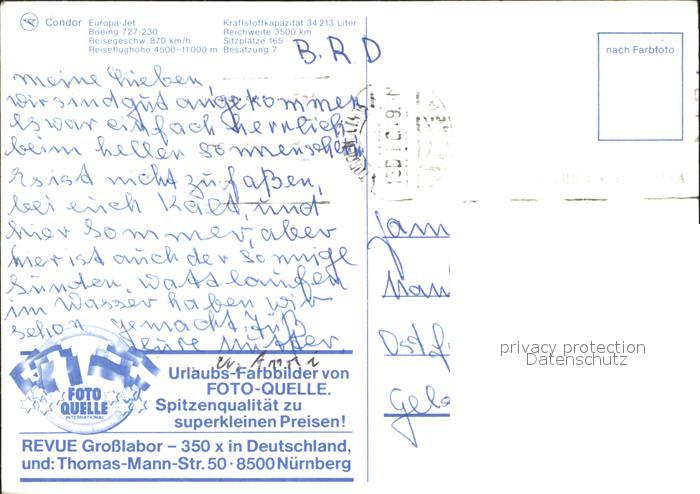 Condor Europa-Jet
Boeing 727-230
Reisegeschw. 870 km/h
Reiseflughöhe 4500–11000 m
Kraftstoffkapazität 34 213 Liter
Reichweite 3500 km
Sitzplätze 165
Besatzung 7
B.R.D
nach Farbfoto
meine Lieben,
wir sind gut angekommen
es war einfach herrlich
beim hellen Sonnenschein
es ist nicht zu faßen,
bei euch Kalt, und
hier Sommer, aber
hier ist auch der sonnige
Süden, Watt laufen
im Wasser haben wir
schon gemacht. Gruß
Eure Mutter
u.
Ostf
privacy protection
Datenschutz
FOTO
QUELLE
INTERNATIONAL
Urlaubs-Farbbilder von
FOTO-QUELLE.
Spitzenqualität zu
superkleinen Preisen!
REVUE Großlabor – 350 x in Deutschland,
und: Thomas-Mann-Str. 50 · 8500 Nürnberg